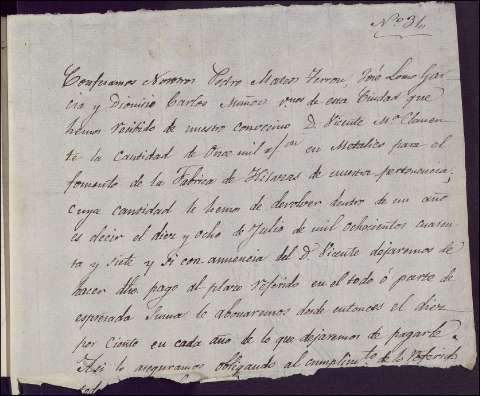 Nº 31.
Confesamos Nosotros Pedro Mateos Ferron, José Lomo Gar-
cia y Dionisio Carlos Muñoz vnos de esta Ciudad que
hemos recibido de nuestro convecino D. Vicente Mª Clemen-
te la cantidad de Once mil rs/on en Metalico para el
fomento de la Fabrica de Hilazas de nuestra pertenencia;
cuya cantidad le hemos de devolver dentro de un año
es decir el diez y ocho de Julio de mil ochocientos cuaren-
ta y siete y si con anuencia del D. Vicente dejaremos de
hacer dho. pago al plazo referido en el todo ó parte de
espresada suma le abonaremos desde entonces el diez
por ciento en cada año de lo que dejaremos de pagarle.
Asi lo aseguramos obligando al cumplimto. de lo referido